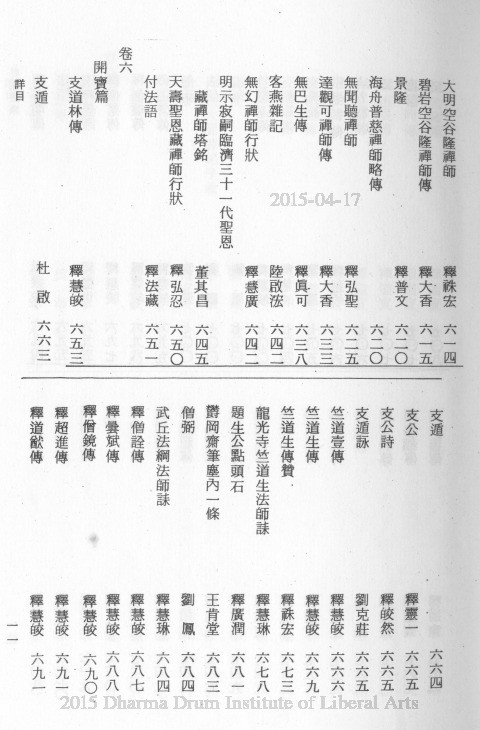 大明空谷隆禪師 釋祩宏 六一四
碧岩空谷隆禪師傳 釋大香 六一五
景隆 釋普文 六二〇
海舟普慈禪師略傳 六二〇
無聞聽禪師 釋弘聖 六二五
達觀可禪師傳 釋大香 六三三
無巴生傳 釋眞可 六三八
客燕雜記 陸啟浤 六四二
無幻禪師行狀 釋慧廣 六四二
明示寂嗣臨濟三十一代聖恩
藏禪師塔銘 董其昌 六四五
天壽聖恩藏禪師行狀 釋弘忍 六五〇
付法語 釋法藏 六五一
卷六
開寶篇
支道林傳 釋慧皎 六五三
支遁 杜啟 六六三
詳目
支遁 六六四
支公 釋靈一 六六五
支公詩 釋皎然 六六五
支遁詠 劉克莊 六六五
竺道壹傳 釋慧皎 六六六
竺道生傳 釋慧皎 六六九
竺道生傳贊 釋祩宏 六七三
龍光寺竺道生法師誄 釋慧琳 六七八
題生公點頭石 釋廣潤 六八一
欝岡齋筆塵內一條 王肯堂 六八三
僧弼 劉鳳 六八四
武丘法綱法師誄 釋慧琳 六八四
釋僧詮傳 釋慧皎 六八七
釋曇斌傳 釋慧皎 六八八
釋僧鏡傳 釋慧皎 六九〇
釋超進傳 釋慧皎 六九一
釋道猷傳 釋慧皎 六九一
一一
2015-04-17
2015 Dharma Drum Institute of Liberal Arts